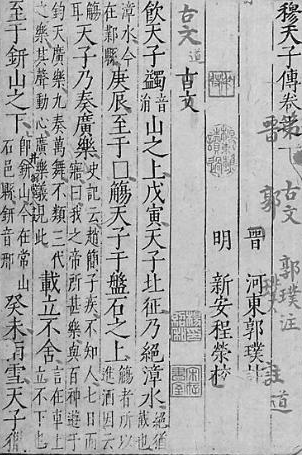 穆天子傳卷第一
古文 郭璞注
晉 郭
道
晉 河東郭璞註
明 新安程榮校
古文 道 古文
飲天子蠲音涓山之上戊寅天子北征乃絕漳水絕猶截也
漳水今在鄴縣庚辰至于□觴天子于盤石之上觴者所以進酒因云
觴耳天子乃奏廣樂史記云趙簡子疾不知人七日而寤曰我之帝所甚樂與百神遊于
鈞天廣樂九奏萬舞不類三代之樂其聲動心廣樂義見此載立不舍言在車上立不下也
至于鈃山之下即鈃山今在常山石邑縣鈃音邢癸未雨雪天子獵